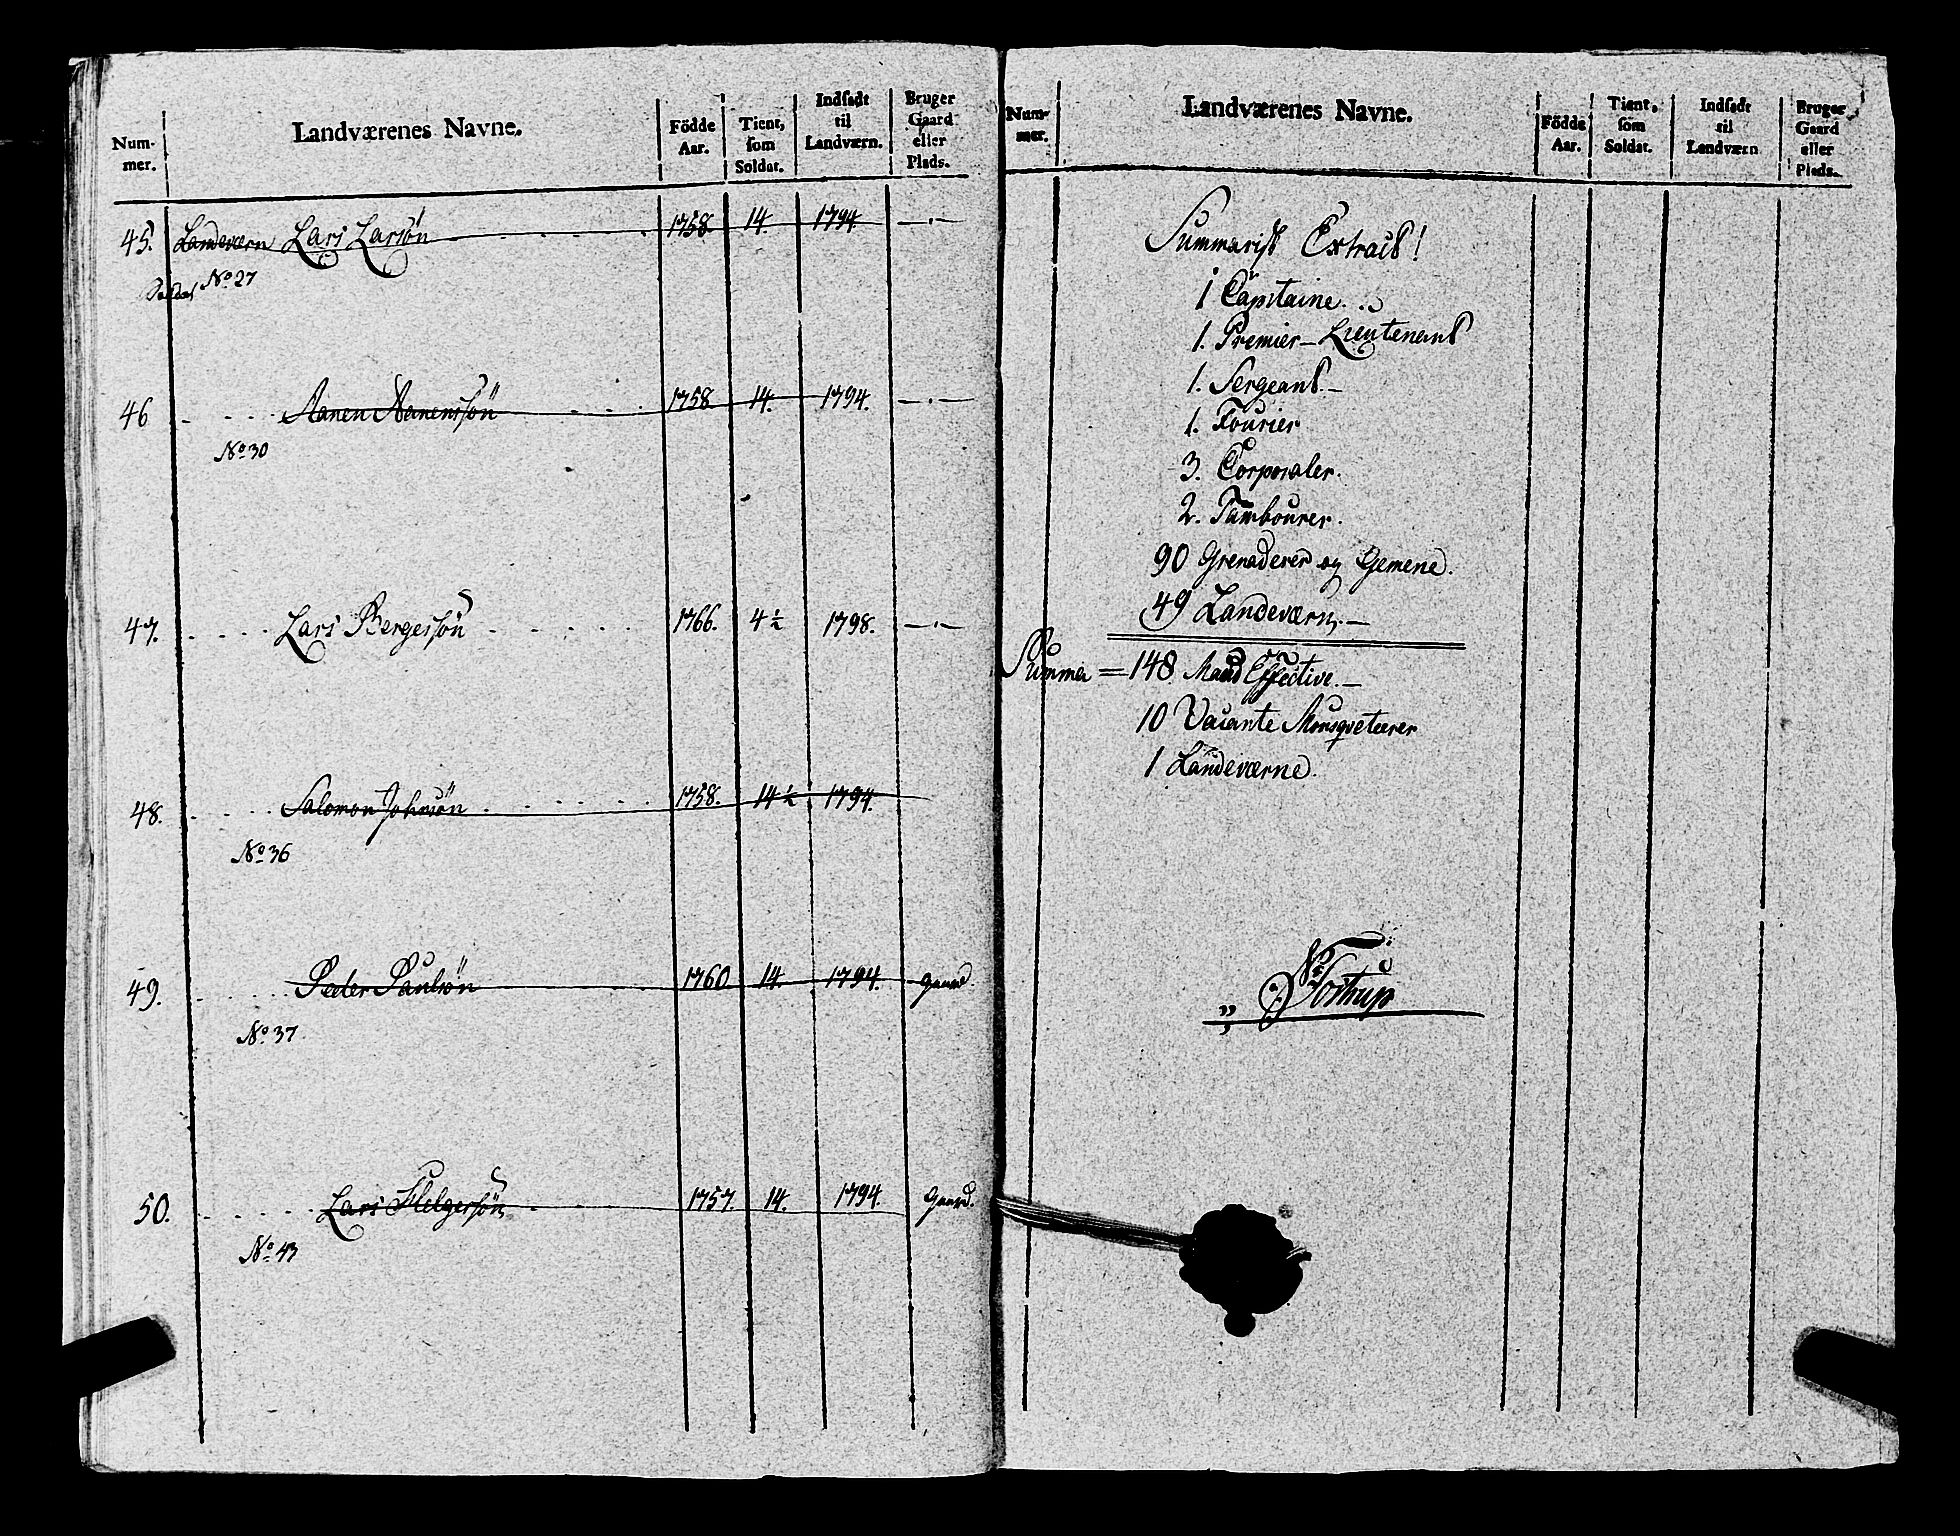 Num-
mer.
Landværenes Navne.
Födde
Aar.
Tient,
som
Soldat.
Indsødt
til
Landværn.
Bruger
Gaard
eller
Plads.
45. Landeværn Lars Larsön 1758. 14 1794 —·—
No 27
46 Aanen Aanenssön 1758. 14. 1794. —·—
No 30
47. Lars Bergersön 1766. 4 ½ 1798. —·—
48. Salomon Johnsön 1758. 14 ½ 1794.
No 36
49. Peder Paulsön 1760 14. 1794. Gaard.
No 37
50. Lars Helgersön 1757. 14. 1794. Gaard.
No 43
Num-
mer.
Landværenes Navne.
Födde
Aar.
Tient,
som
Soldat.
Indsødt
til
Landværn
Bruger
Gaard
eller
Plads.
Summarisk Extract!
1 Capitaine.
1. Premier-Lieutenant
1. Sergeant.—
1. Fourier
3. Corporaler.
2. Tambourer.
90 Grenaderer og Gemene.
49 Landeværn.—
Summa = 148 Mand Effective.—
10 Vacante Mousqveteerer
1 Landeværne.
N: Tostrup